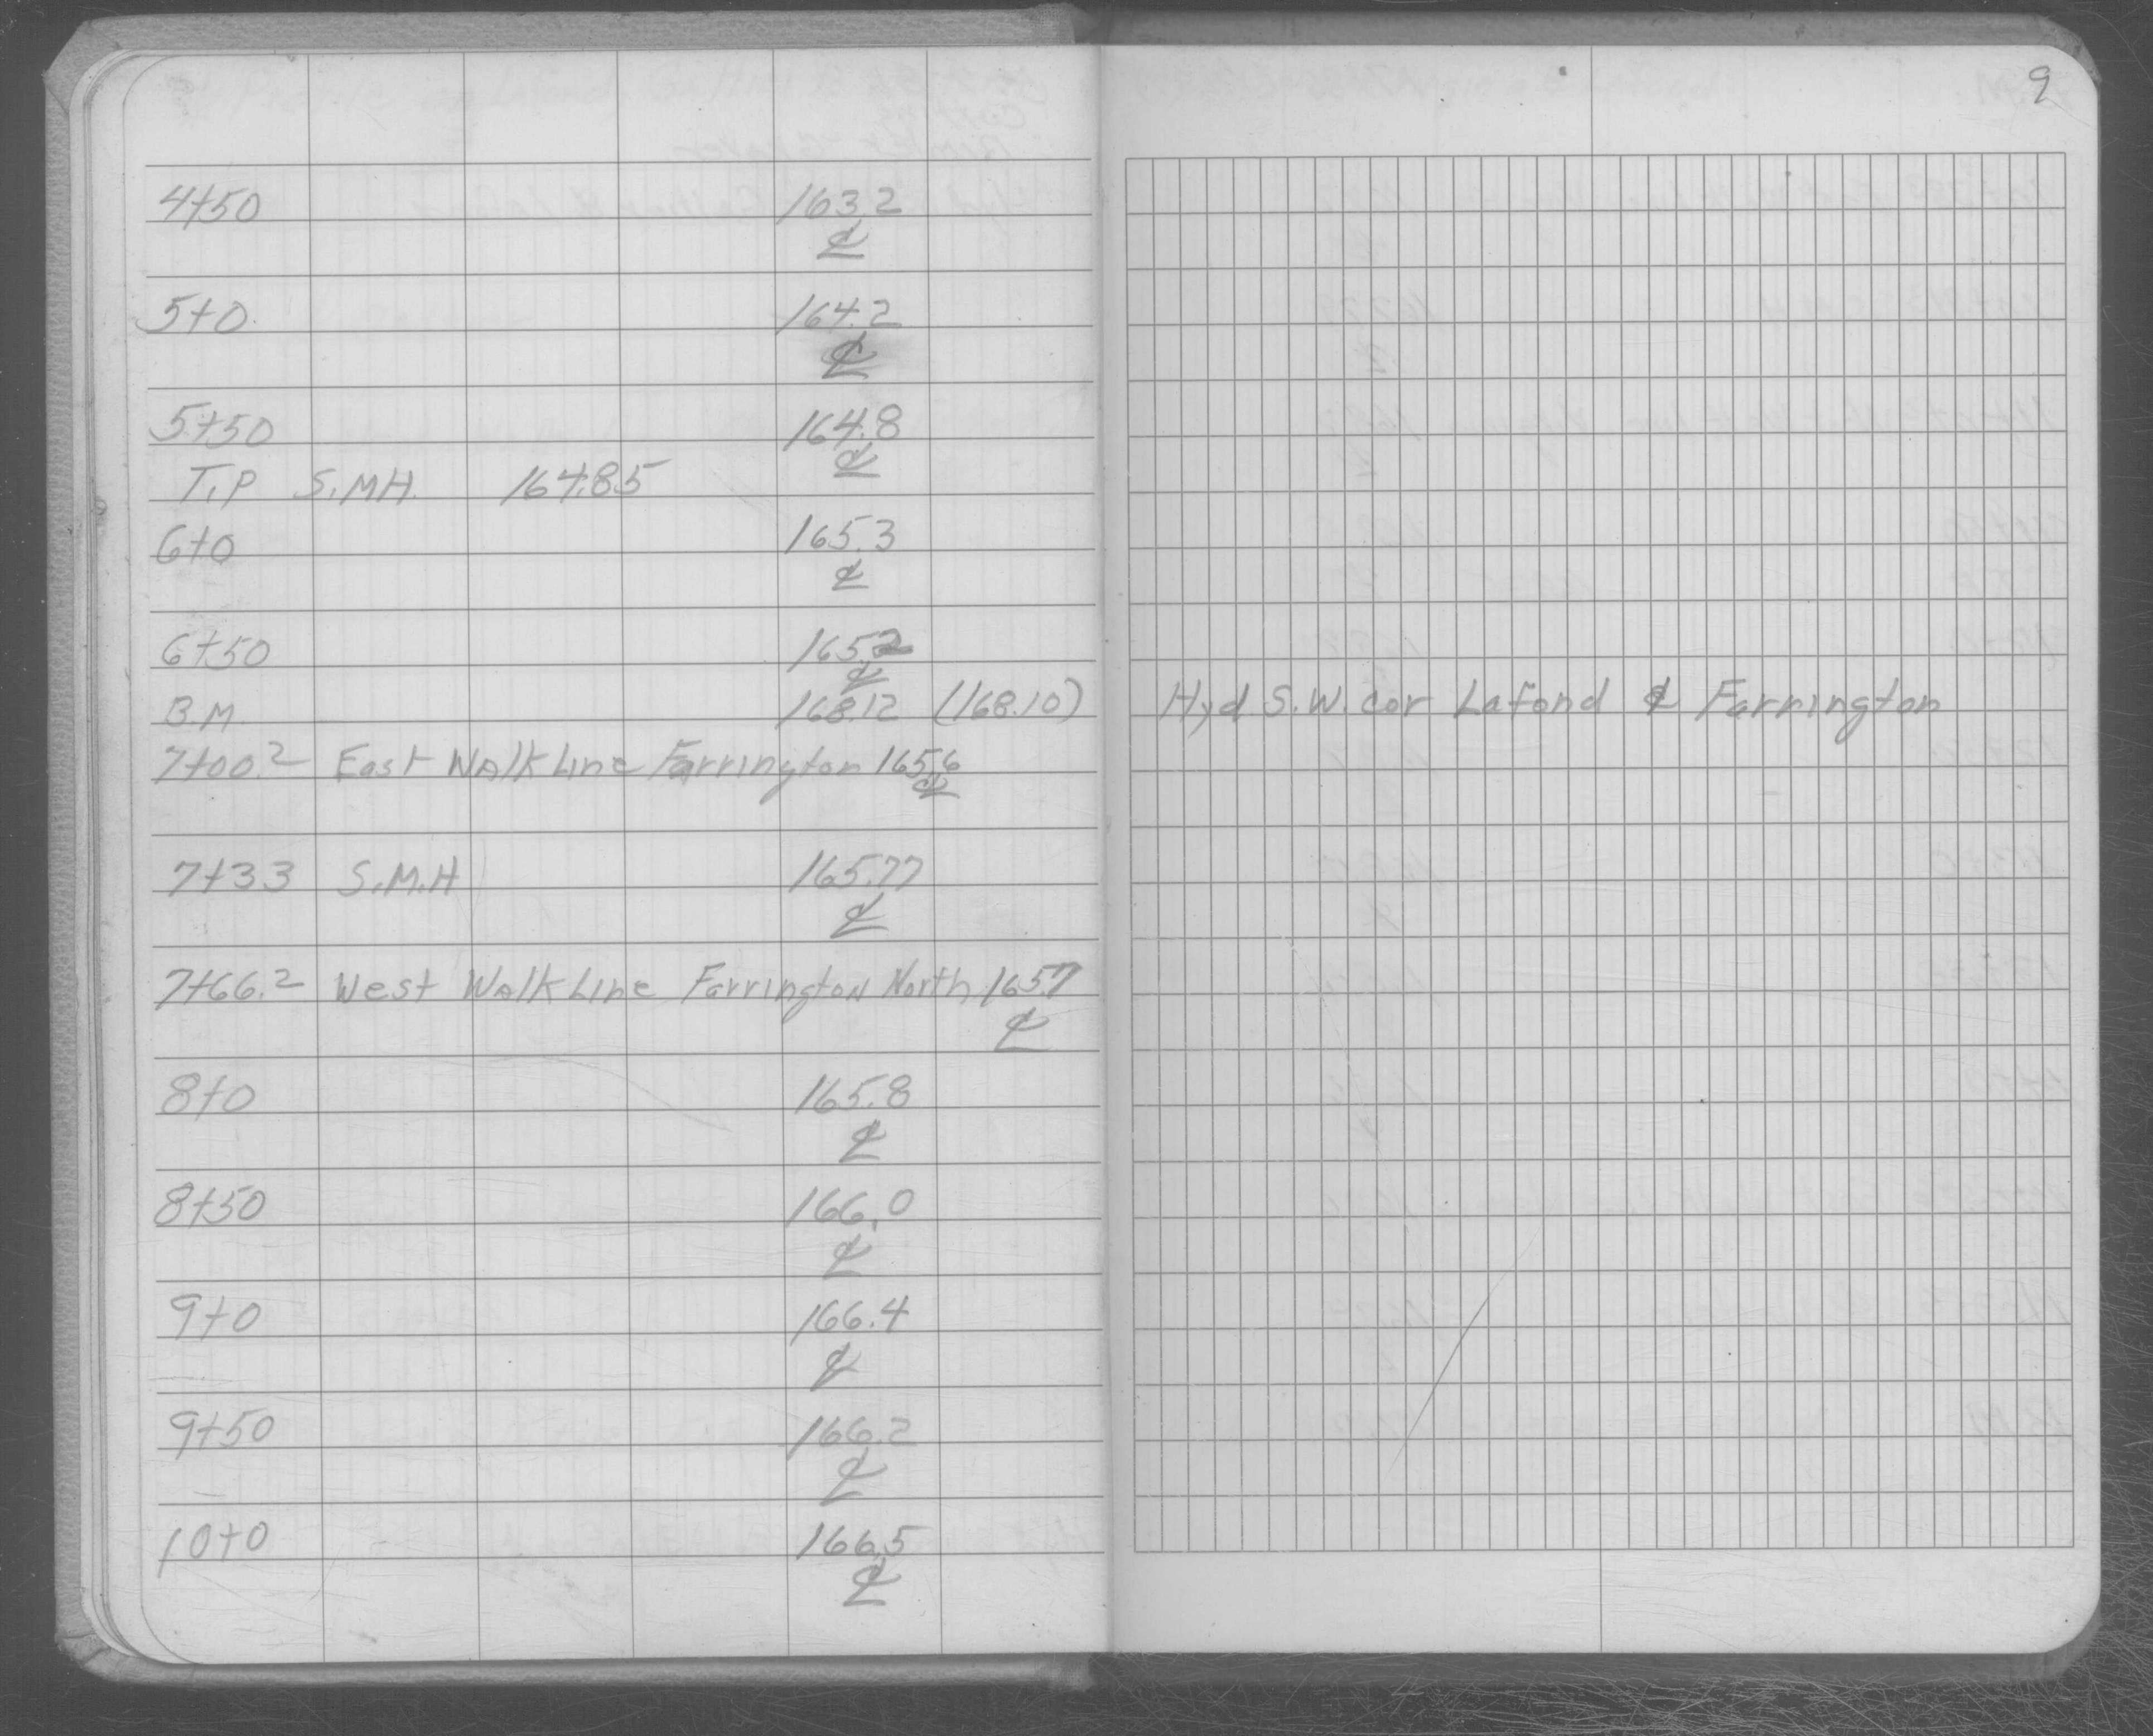 9
4+50 163.2
℄
5+0 164.2
℄
5+50 164.8
℄
T.P S.MH. 164.85
6+0 165.3
℄
6+50 165.2
℄
B.M. 168.12 (168.10) Hyd S.W. cor Lafond & Farrington
7+00.2 East Walk Line Farrington 165.6
℄
7+33 S.M.H 165.77
℄
7+66.2 West Walk Line Farrington North 165.7
℄
8+0 165.8
℄
8+50 166.0
℄
9+0 166.4
℄
9+50 166.2
℄
10+0 166.5
℄